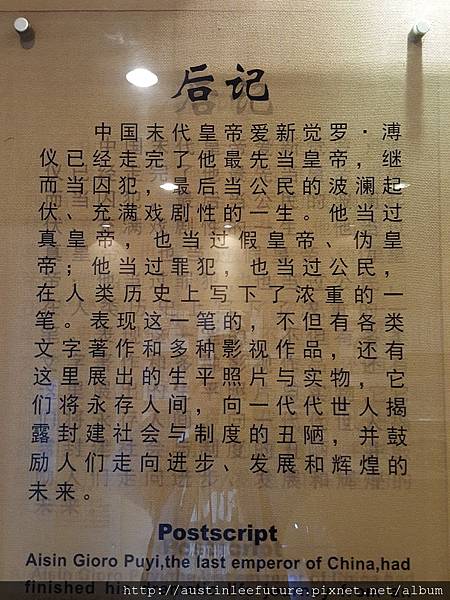 后记
中国末代皇帝爱新觉罗·溥
仪已经走完了他最先当皇帝，继
而当囚犯，最后当公民的波澜起
伏、充满戏剧性的一生。他当过
真皇帝，也当过假皇帝、伪皇
帝；他当过罪犯，也当过公民，
在人类历史上写下了浓重的一
笔。表现这一笔的，不但有各类
文字著作和多种影视作品，还有
这里展出的生平照片与实物，它
们将永存人间，向一代代世人揭
露封建社会与制度的丑陋，并鼓
励人们走向进步、发展和辉煌的
未来。
Postscript
Aisin Gioro Puyi,the last emperor of China,had
finished
http://austinleefuture.pixnet.net/album